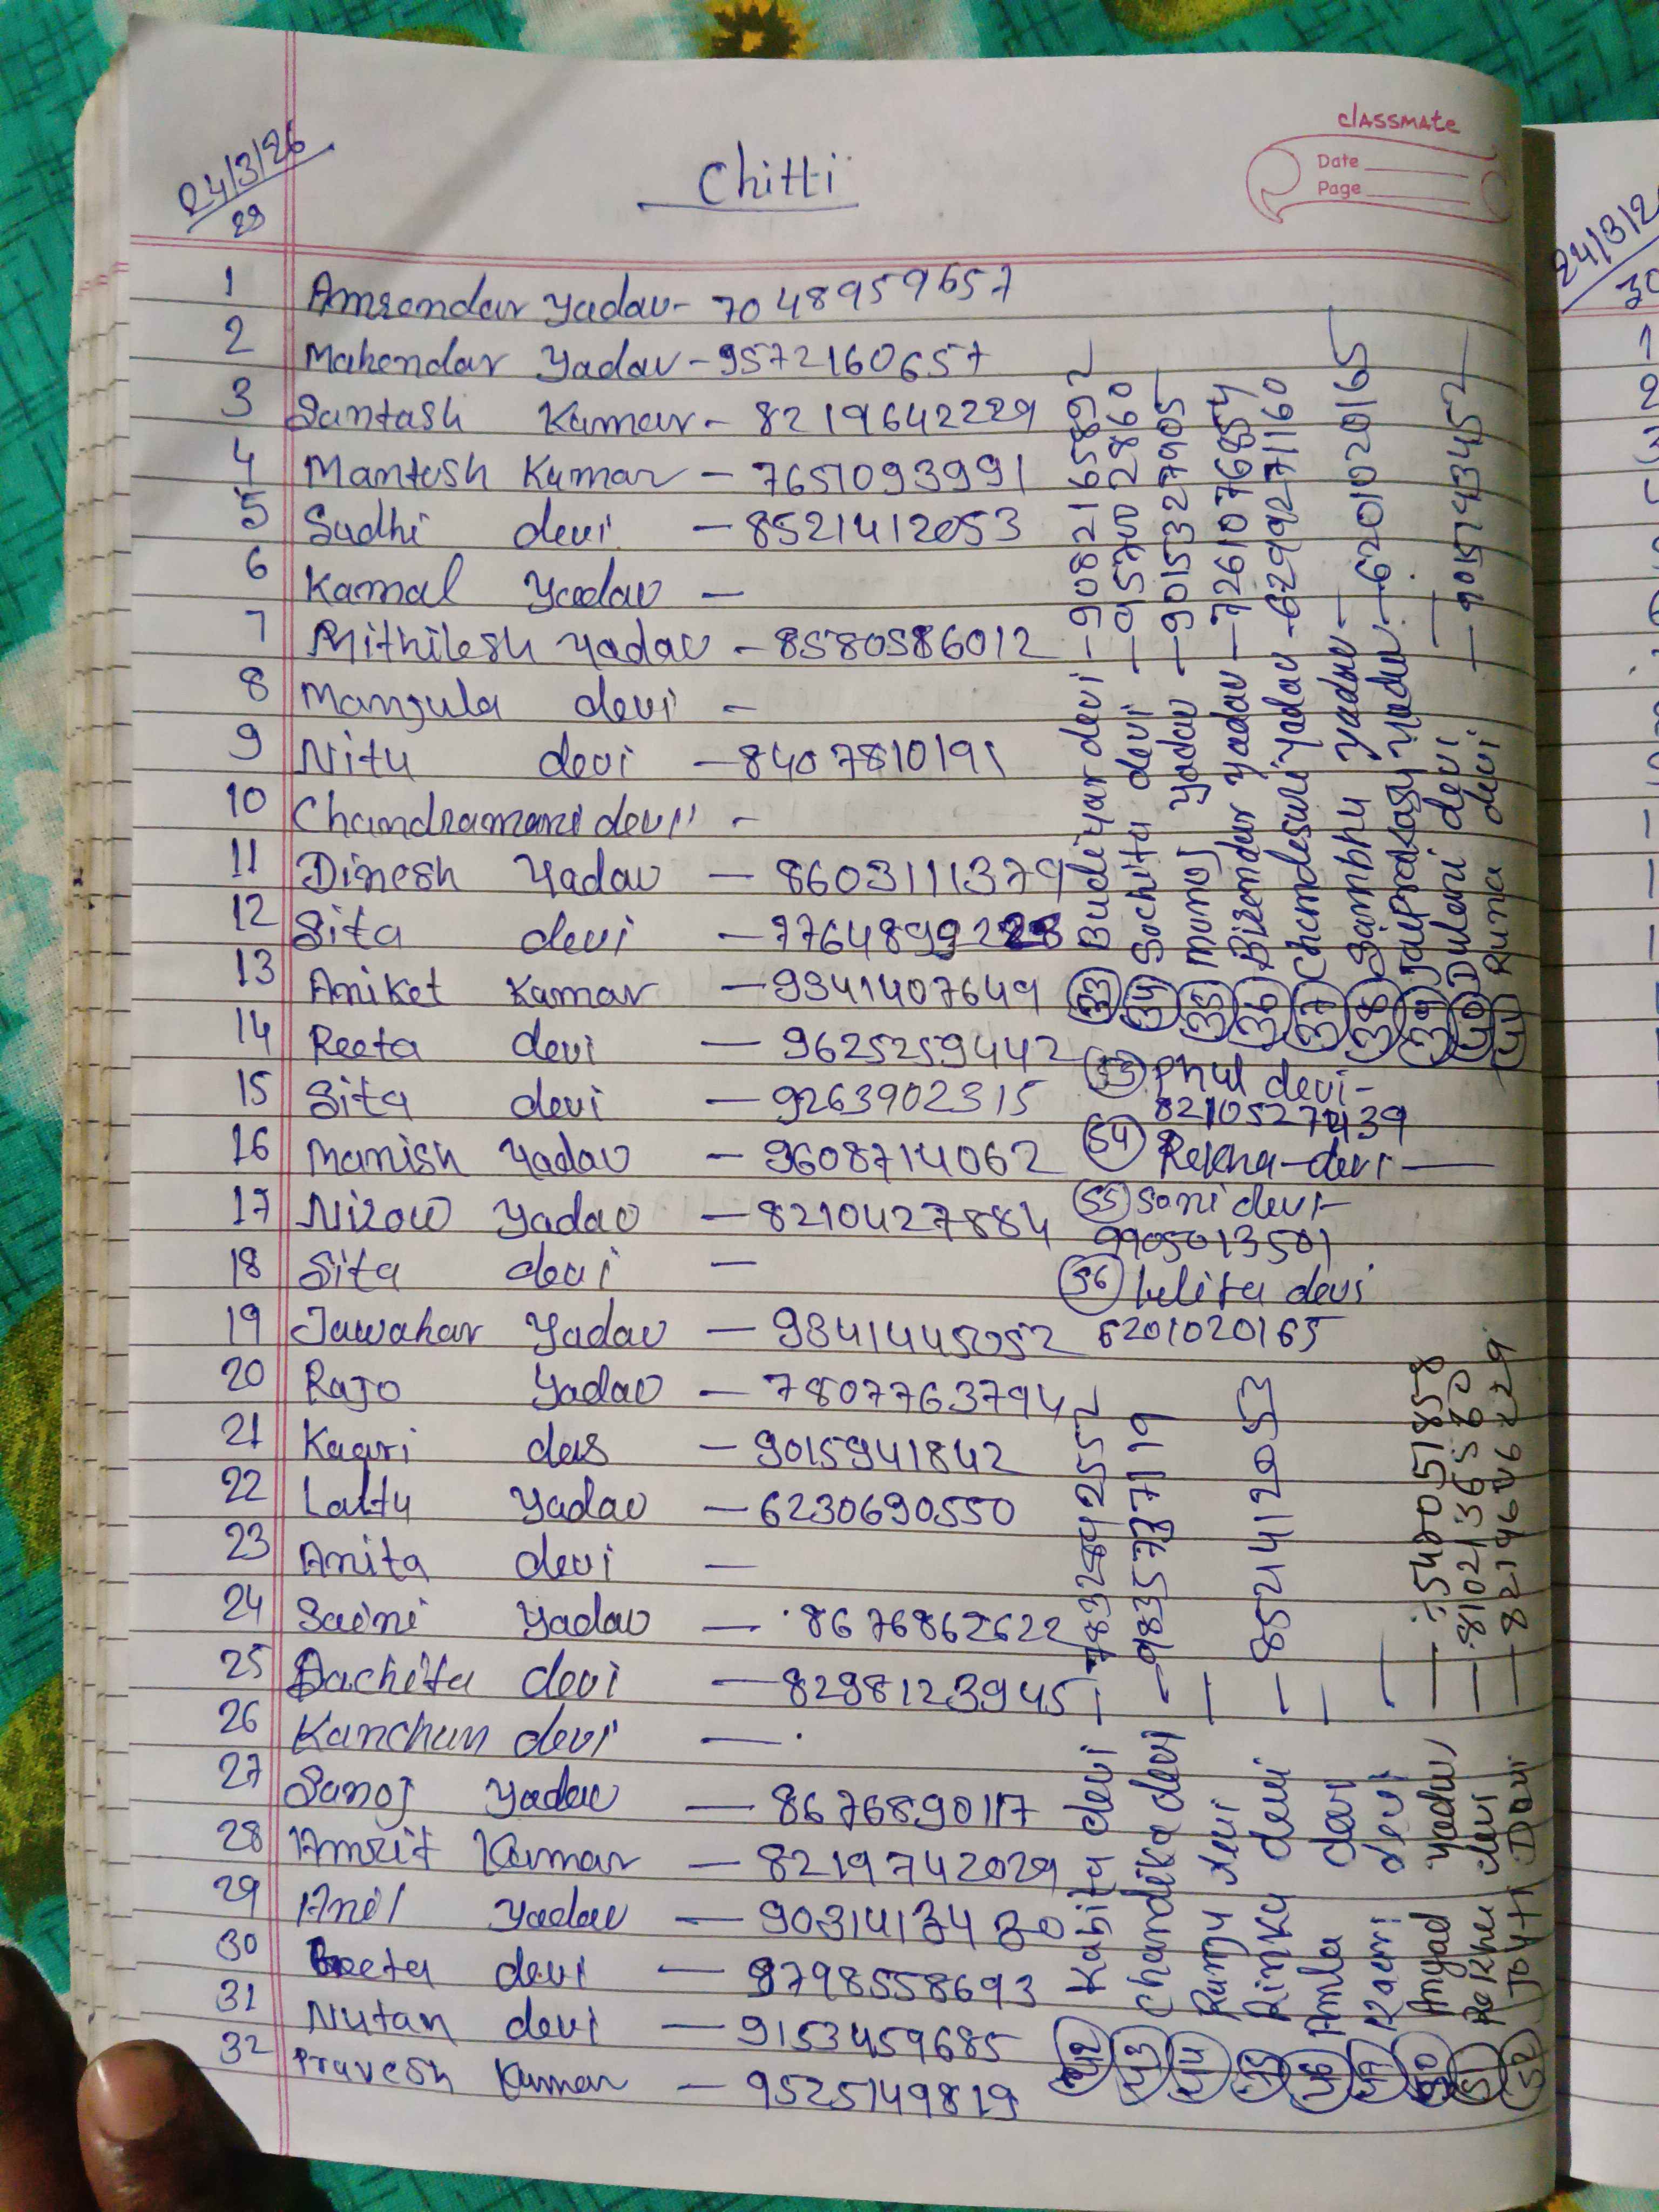 24/3/26
28
Chitti
classmate
Date
Page
1 Amrendar Yadav - 7048959657
2 Mahendar Yadav - 9572160657
3 Santash Kumar - 8219642229
4 Mantosh Kumar - 7651093991
5 Sudhi devi - 8521412053
6 Kamal Yadav -
7 Mithilesh Yadav - 8580586012
8 Manjula devi -
9 Nitu devi - 8407810191
10 Chandramani devi -
11 Dinesh Yadav - 8603111379
12 Sita devi - 7764899228
13 Aniket Kumar - 9341407649
14 Reeta devi - 9625259442
15 Sita devi - 9263902315
16 Manish Yadav - 9608714062
17 Nirow Yadav - 8210427884
18 Sita devi -
19 Jawahar Yadav - 9341445052
20 Rajo Yadav - 7807763794
21 Kaari das - 9015941842
22 Laltu Yadav - 6230690550
23 Anita devi -
24 Saini Yadav - 8676862622
25 Sachita devi - 8298123945
26 Kanchun devi -
27 Sanoj Yadav - 8676890117
28 Amrit Kumar - 8219742029
29 Anil Yadav - 9031413430
30 Geeta devi - 8798558693
31 Nutan devi - 9153459685
32 Pravesh Kumar - 9525149819
33 Budeiyar devi - 9082165892
34 Sochita devi - 9570002860
35 Manoj Yadav - 9015327905
36 Birendar Yadav - 7261076854
37 Chamdesuri Yadav - 6299927160
38 Sambhu Yadav -
39 Jaiprakash Yadav - 6201020165
40 Dulani devi -
41 Runa devi - 9015743452
53 Phul devi -
8210527439
54 Rekha devi -
55 Soni devi -
9905013501
56 Lelita devi
6201020165
42 Kabita devi - 7832842552
43 Chandika devi - 9835737119
44 Ranju devi -
45 Rinku devi - 8521412053
46 Amla devi -
47 Rani devi -
50 Angad Yadav - 7540051858
51 Rekha devi - 8102136580
52 Joyti Devi - 8219606229
24/3/2
30
1
2